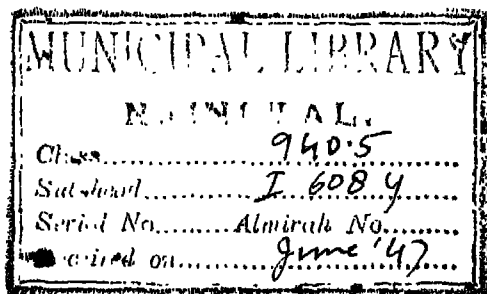 MUNICIPAL LIBRARY
NAINITAL.
Class..................940.5..................
Sub-head..................I 608 Y..................
Serial No..........Almirah No..........
Received on..................June '47..................